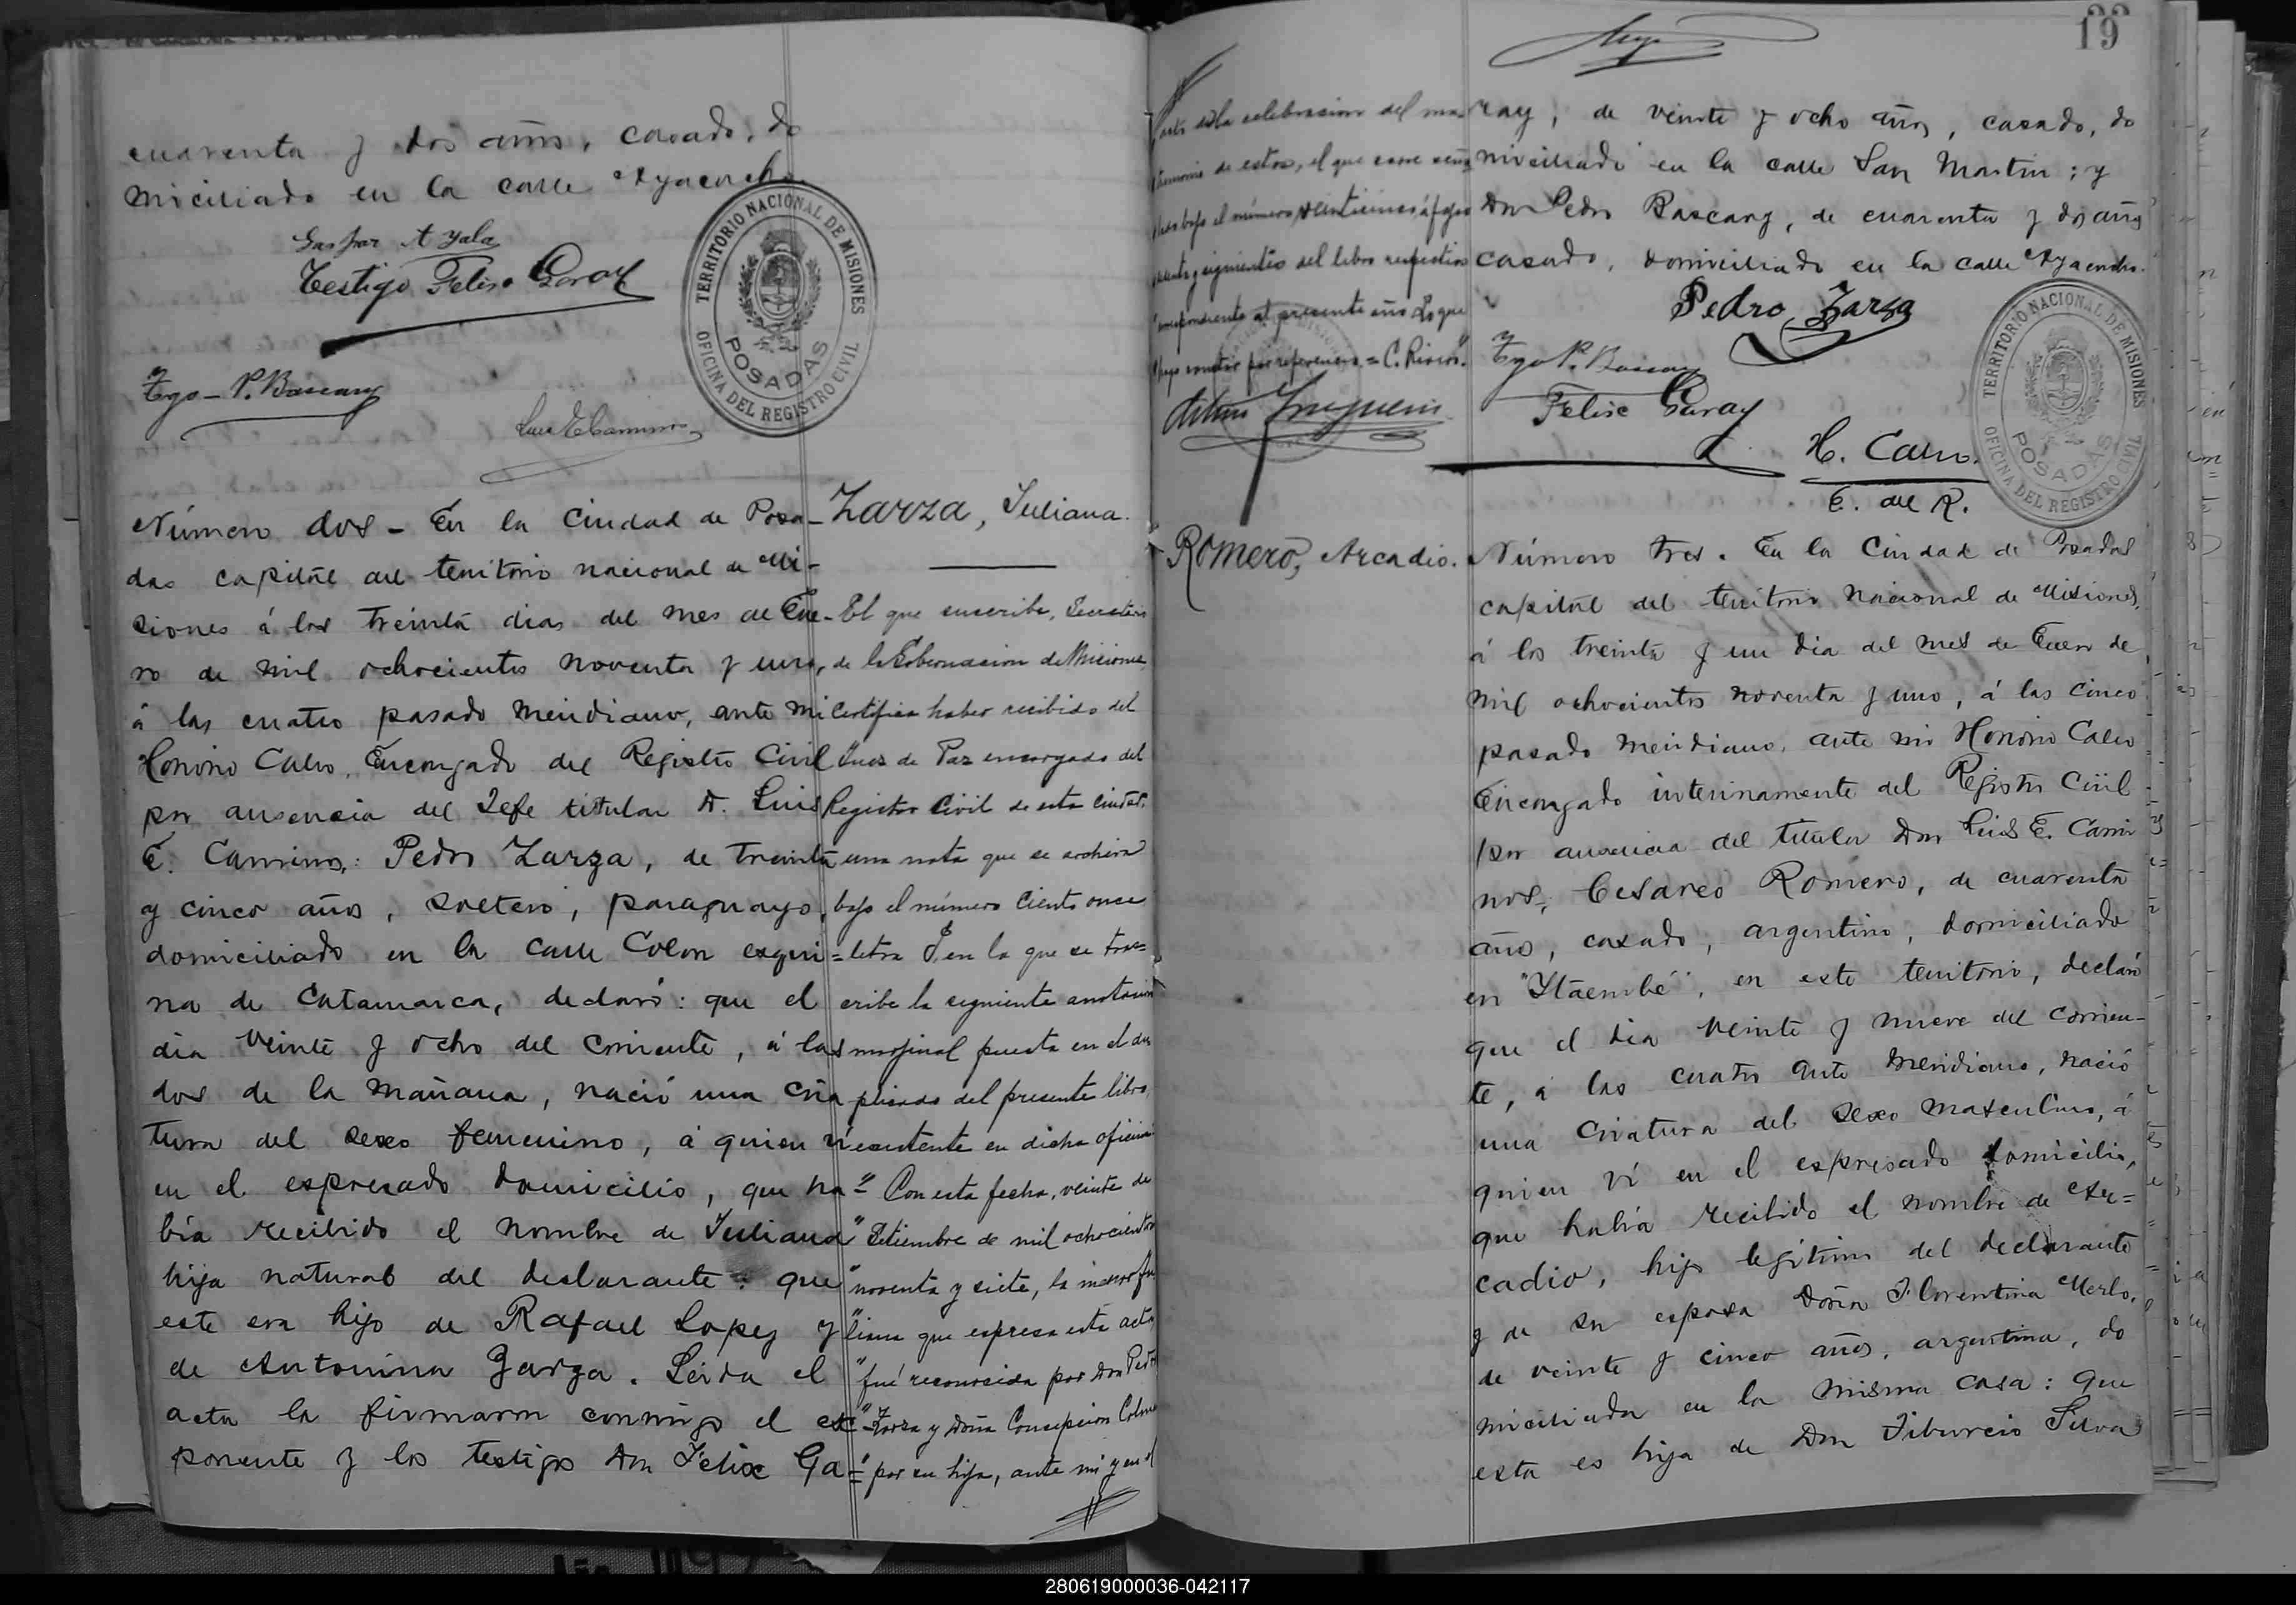 cuarenta y dos años, casado, do
miciliado en la calle Ayacucho.
Gaspar Ayala
Testigo Felise Garay
Tgo - P. Bascary
Luis E. Camino
TERRITORIO NACIONAL DE MISIONES
POSADAS
OFICINA DEL REGISTRO CIVIL
Número dos - En la Ciudad de Posa-
das capital del territorio nacional de Mi-
siones á los treinta dias del mes de Ene-
ro de mil ochocientos noventa y uno,
á las cuatro pasado meridiano, ante mi
Honorio Calvo, Encargado del Registro Civil
por ausencia del Jefe titular D. Luis
E. Camino,: Pedro Zarza, de treinta
y cinco años, soltero, paraguayo,
domiciliado en la calle Colon esqui=
na de Catamarca, declaró: que el
dia veinte y ocho del corriente, á las
dos de la mañana, nació una cria
tura del sexo femenino, á quien ví
en el espresado domicilio, que ha=
bía recibido el nombre de Juliana
hija natural del declarante: que
este era hijo de Rafael Lopez y
de Antonina Zarza. Leida el
acta la firmaron conmigo el ex=
ponente y los testigos Don Felix Ga=
Zarza, Juliana.
El que suscribe, Secretario
de la Gobernacion de Misiones,
Certifica haber recibido del
Juez de Paz encargado del
Registro Civil de esta Ciudad,
una nota que se archiva
bajo el número Ciento once
letra J, en la que se tras=
cribe la siguiente anotacion
marginal puesta en el du
plicado del presente libro,
existente en dicha oficina:
" Con esta fecha, veinte de
" Setiembre de mil ochocientos
" noventa y siete, la menor Ju
" liana que espresa esta acta,
" fué reconocida por Don Pedro
" Zarza y Doña Concepcion
" por su hija, ante mi y en el
19
acto de la celebracion del ma
trimonio de estos, el que corre
bajo el número veinticinco á fojas
y siguientes del libro respectivo
correspondiente al presente año. Lo que
hago constar por referencia = C. Rivero".
Romero, Arcadio.
ray, de veinte y ocho años, casado, do
miciliado en la calle San Martin; y
Don Pedro Bascary, de cuarenta y dos años
casado, domiciliado en la calle Ayacucho.
Pedro Zarza
Tgo P. Bascary
Felise Garay
H. Calvo.
E. del R.
TERRITORIO NACIONAL DE MISIONES
POSADAS
OFICINA DEL REGISTRO CIVIL
Número tres. En la Ciudad de Posadas
capital del territorio Nacional de Misiones,
á los treinta y un dia del mes de Enero de
mil ochocientos noventa y uno, á las cinco
pasado meridiano, ante mi Honorio Calvo
Encargado interinamente del Registro Civil
por ausencia del titular Don Luis E. Cami
nos, Cesareo Romero, de cuarenta
años, casado, argentino, domiciliado
en "Ytaembé", en este territorio, declaró
que el dia veinte y nueve del corrien-
te, á las cuatro ante meridiano, nació
una criatura del sexo masculino, á
quien ví en el espresado domicilio,
que había recibido el nombre de Ar=
cadio, hijo legítimo del declarante
y de su esposa Doña Florentina Merlo,
de veinte y cinco años, argentina, do
miciliada en la misma casa: que
esta es hija de Don Tiburcio Silva
280619000036-042117